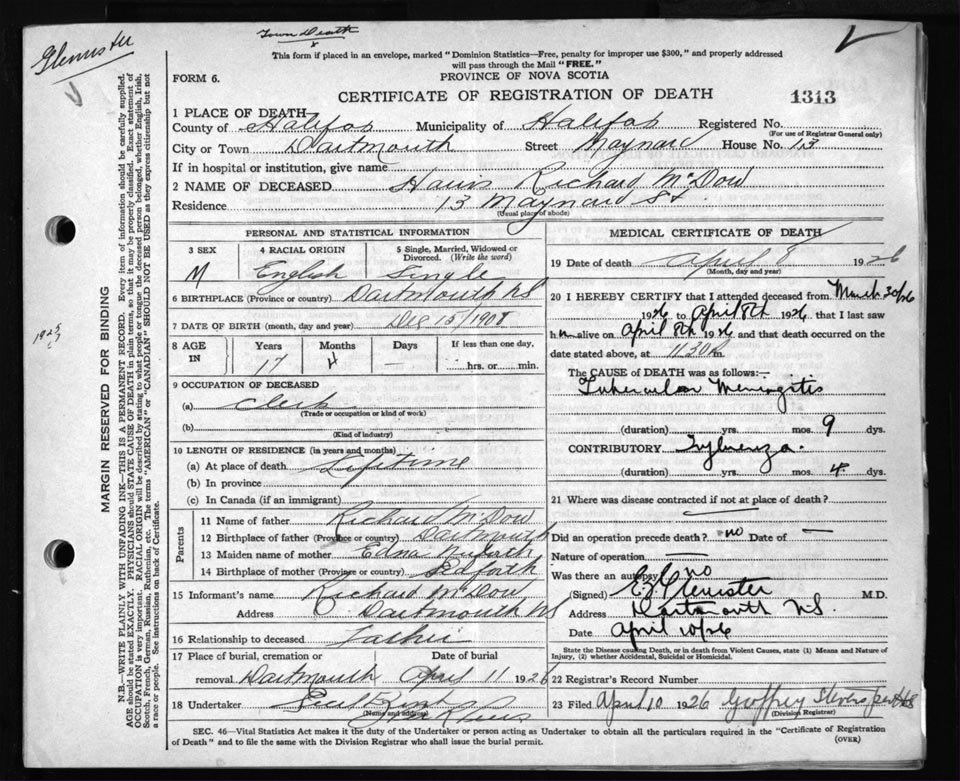 Glenister
Town Death
This form if placed in an envelope, marked "Dominion Statistics—Free, penalty for improper use $300," and properly addressed
will pass through the Mail "FREE."
FORM 6.
PROVINCE OF NOVA SCOTIA
CERTIFICATE OF REGISTRATION OF DEATH
1313
1 PLACE OF DEATH
County of Halifax Municipality of Halifax Registered No.
(For use of Registrar General only)
City or Town Dartmouth Street Maynard House No. 13
If in hospital or institution, give name
2 NAME OF DECEASED Richard McDow
Residence 13 Maynard St.
(Usual place of abode)
PERSONAL AND STATISTICAL INFORMATION
3 SEX
M
4 RACIAL ORIGIN
English
5 Single, Married, Widowed or
Divorced. (Write the word)
Single
6 BIRTHPLACE (Province or country) Dartmouth NS
7 DATE OF BIRTH (month, day and year) Dec 15/1908
8 AGE IN
Years Months Days If less than one day,
17 4 — hrs. or min.
9 OCCUPATION OF DECEASED
(a) Clerk
(Trade or occupation or kind of work)
(b)
(Kind of industry)
10 LENGTH OF RESIDENCE (in years and months)
(a) At place of death Lifetime
(b) In province
(c) In Canada (if an immigrant)
Parents
11 Name of father Richard McDow
12 Birthplace of father (Province or country) Dartmouth
13 Maiden name of mother Edna
14 Birthplace of mother (Province or country) Seaforth
15 Informant's name Richard McDow
Address Dartmouth NS
16 Relationship to deceased Father
17 Place of burial, cremation or removal Date of burial
Dartmouth April 11 1926
18 Undertaker
(Name and address)
MEDICAL CERTIFICATE OF DEATH
19 Date of death April 8 1926
(Month, day and year)
20 I HEREBY CERTIFY that I attended deceased from March 30/26
1926 to April 8th 1926, that I last saw
him alive on April 8th 1926 and that death occurred on the
date stated above, at 11.30 m.
The CAUSE OF DEATH was as follows:—
Tubercular Meningitis
(duration) yrs. mos. 9 dys.
CONTRIBUTORY Influenza.
(duration) yrs. mos. 4 dys.
21 Where was disease contracted if not at place of death?
—
Did an operation precede death? no Date of —
Nature of operation —
Was there an autopsy no
(Signed) Glenister M.D.
Address Dartmouth N.S.
Date April 10/26
State the Disease causing Death, or in death from Violent Causes, state (1) Means and Nature of
Injury, (2) whether Accidental, Suicidal or Homicidal.
22 Registrar's Record Number
23 Filed April 10 1926 Geoffrey Stevens
(Division Registrar)
SEC. 46—Vital Statistics Act makes it the duty of the Undertaker or person acting as Undertaker to obtain all the particulars required in the "Certificate of Registration
of Death" and to file the same with the Division Registrar who shall issue the burial permit.
(OVER)
MARGIN RESERVED FOR BINDING
N.B.—WRITE PLAINLY WITH UNFADING INK—THIS IS A PERMANENT RECORD. Every item of information should be carefully supplied.
AGE should be stated EXACTLY. PHYSICIANS should STATE CAUSE OF DEATH in plain terms, so that it may be properly classified. Exact statement of
OCCUPATION is very important. RACIAL ORIGIN will be described by stating to what people or tongue the deceased person belonged, whether English, Irish,
Scotch, French, German, Russian, Ruthenian, etc. The terms "AMERICAN" or "CANADIAN" SHOULD NOT BE USED as they express citizenship but not
a race or people. See instructions on back of Certificate.